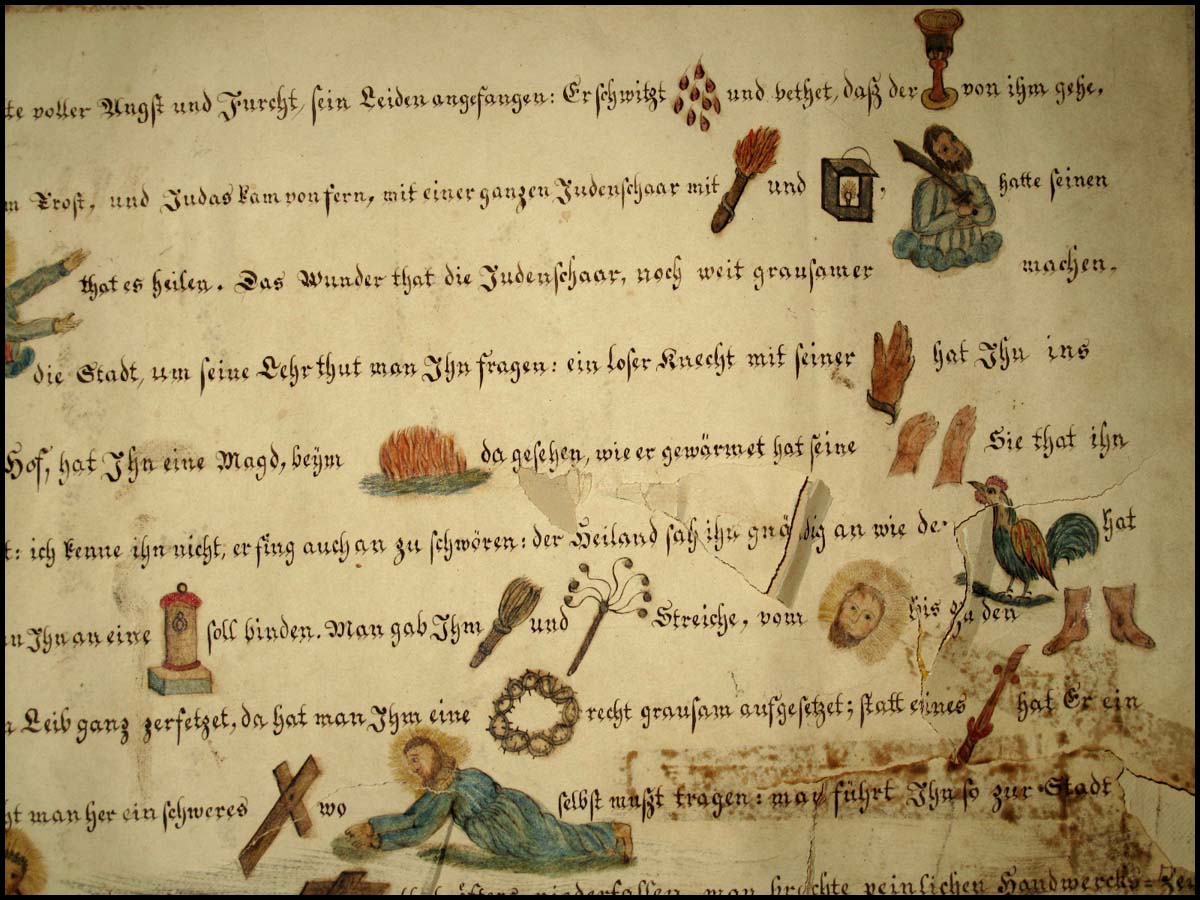 voller Angst und Furcht, sein Leiden angefangen: Er schwitzt und bethet, daß der von ihm gehe,
Trost, und Judas kam von fern, mit einer ganzen Judenschaar mit und , hatte seinen
that es heilen. Das Wunder that die Judenschaar, noch weit grausamer machen.
die Stadt, um seine Lehr thut man Ihn fragen: ein loser Knecht mit seiner hat Ihn ins
Hof, hat Ihn eine Magd, beÿm da gesehen, wie er gewärmet hat seine Sie that ihn
ich kenne ihn nicht, er fing auch an zu schwören: der Heiland sah ihn gnädig an wie de hat
Ihn an eine soll binden. Man gab Ihm und Streiche, vom bis zu den
Leib ganz zerfetzet, da hat man Ihm eine recht grausam aufgesetzet; statt eines hat Er ein
man her ein schweres wo selbst mußt tragen: man führt Ihn so zur Stadt
öfters niederfallen, man brachte peinlichen Handwercks-